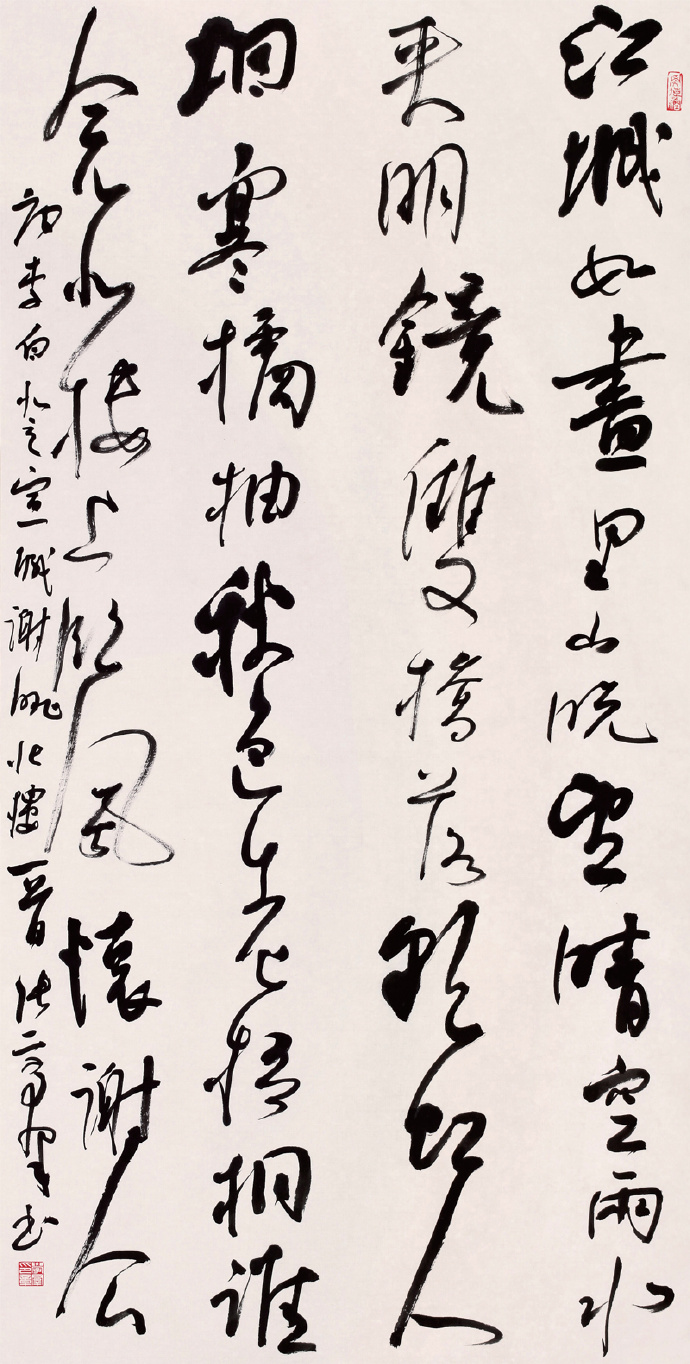 江城如畫里山曉望晴空兩水
夾明鏡雙橋落彩虹人
烟寒橘柚秋色老梧桐誰
念北樓上臨風懷謝公
李白秋登宣城謝朓北樓 晉 張 書